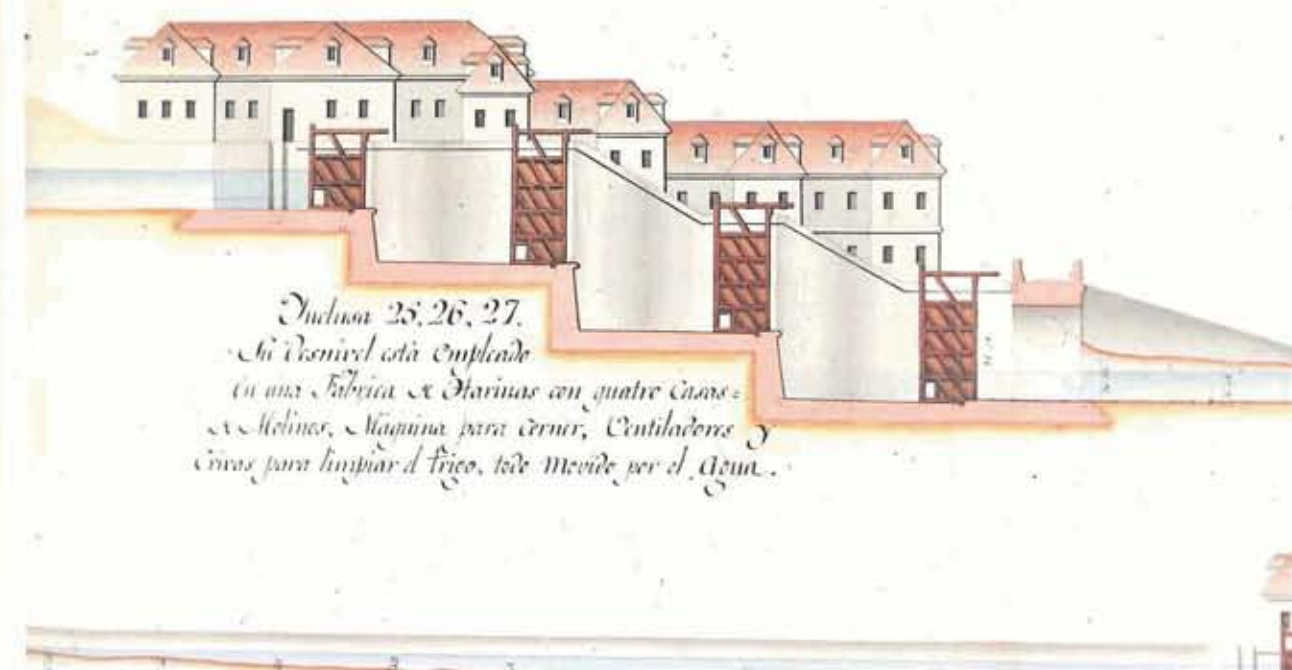 Ynclusa 25, 26, 27.
Su Desnivel està Empleado
en una Fabrica de Harinas con quatro Casas =
de Molinos, Maquina para Cerner, Ventiladores y
Crivas para limpiar el trigo, todo Movido por el Agua.